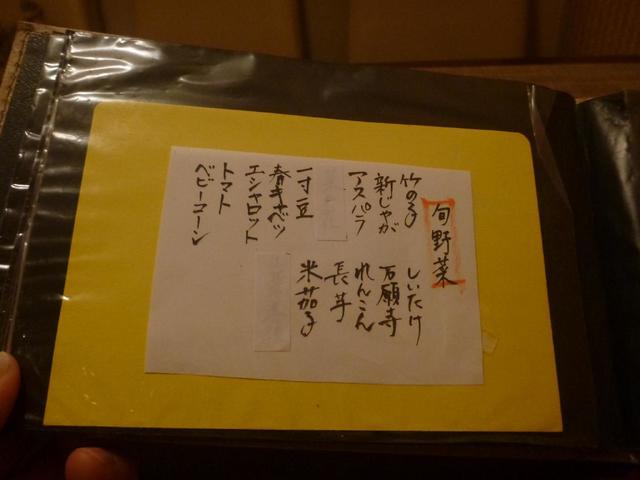 旬野菜
竹の子
新じゃが
アスパラ
一寸豆
春キャベツ
エシャロット
トマト
ベビーコーン
しいたけ
石願寺
れんこん
長芋
米茄子